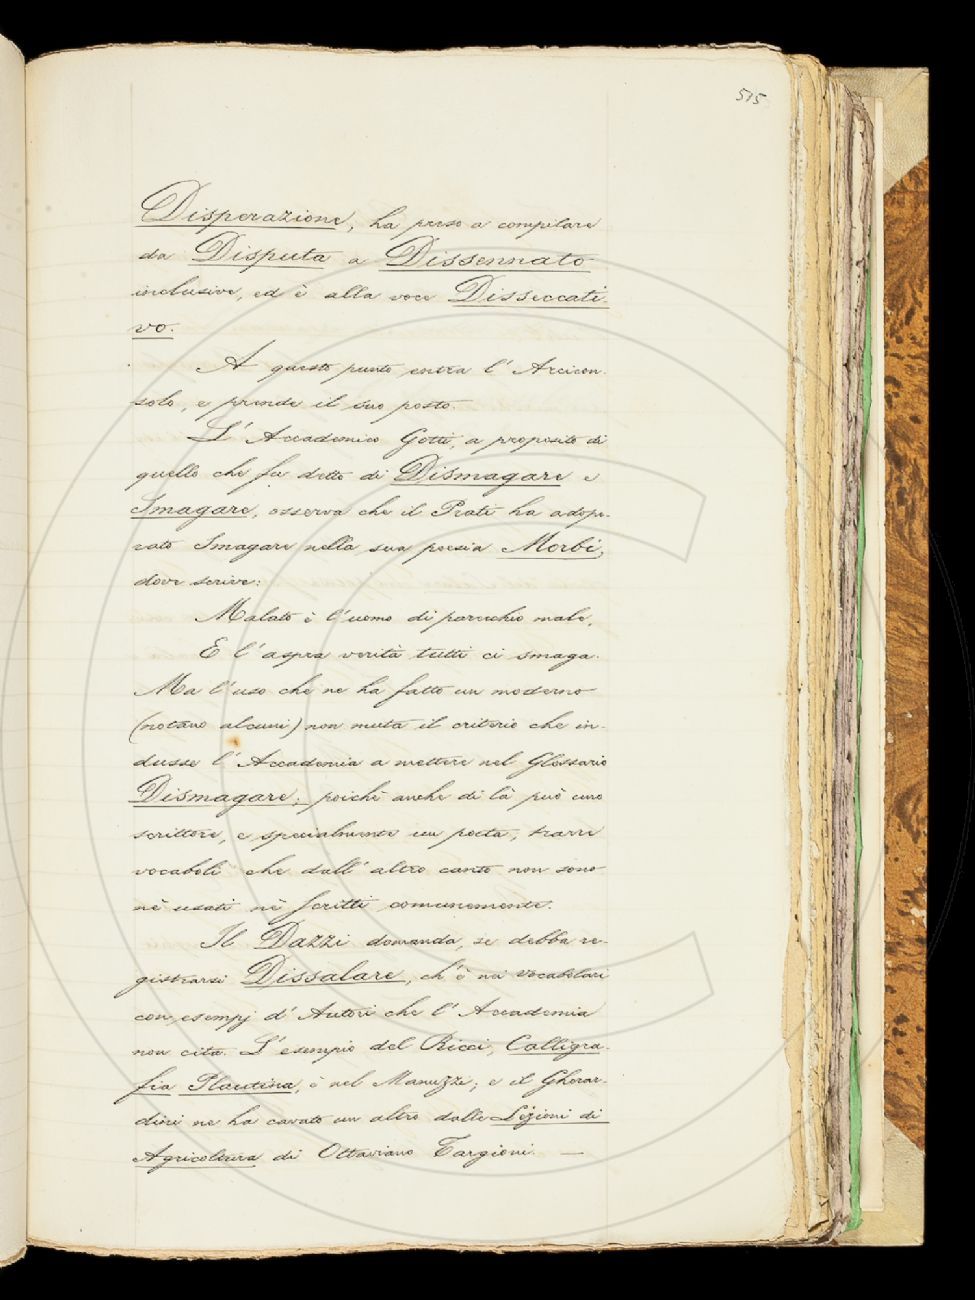 515
Disperazione, ha preso a compilare
da Disputa a Dissennato
inclusive, ed è alla voce Disseccati-
vo.
A questo punto entra l'Arcicon-
solo, e prende il suo posto.
L'Accademico Gotti, a proposito di
quello che fu detto di Dismagare e
Smagare, osserva che il Prati ha adope-
rato Smagare nella sua poesia Morbi,
dove scrive:
Malato è l'uomo di parecchio male,
E l'aspra verità tutti ci smaga.
Ma l'uso che ne ha fatto un moderno
(notano alcuni) non muta il criterio che in-
dusse l'Accademia a mettere nel Glossario
Dismagare; poichè anche di là può uno
scrittore, e specialmente un poeta, trarre
vocaboli che dall'altro canto non sono
nè usati nè scritti comunemente.
Il Dazzi domanda, se debba re-
gistrarsi Dissalare, ch'è nei vocabolari
con esempj d'Autori che l'Accademia
non cita. L'esempio del Ricci, Calligra-
fia Plautina, è nel Manuzzi; e il Gherar-
dini ne ha cavato un altro dalle Lezioni di
Agricoltura di Ottaviano Targioni. —